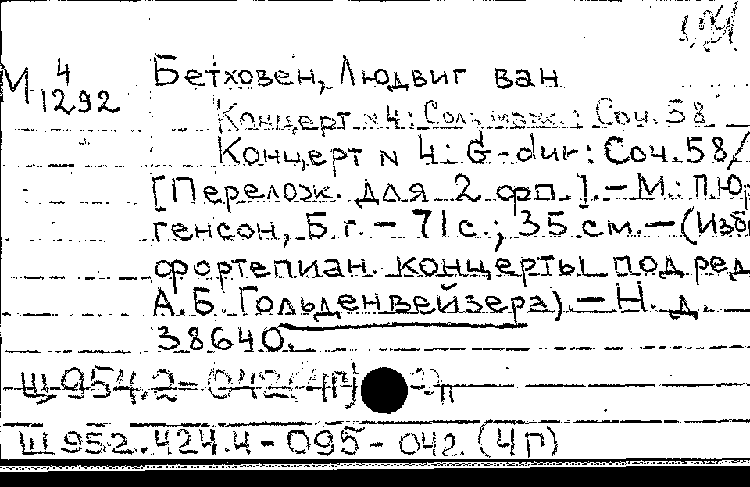 М 4
1292
Бетховен, Людвиг ван
Концерт №4: Соль маж.: Соч. 58
Концерт N 4: G-dur: Соч. 58/
[Перелож. для 2 фп.]. – М.: П.Юр
генсон, Б.г. – 71 с.; 35 см. – (Изб
фортепиан. концерты под ред
А.Б. Гольденвейзера) – Н. д.
38640.
Ш 954.2-042(4Г)
Ш 952.424.4-095-042.(4Г)